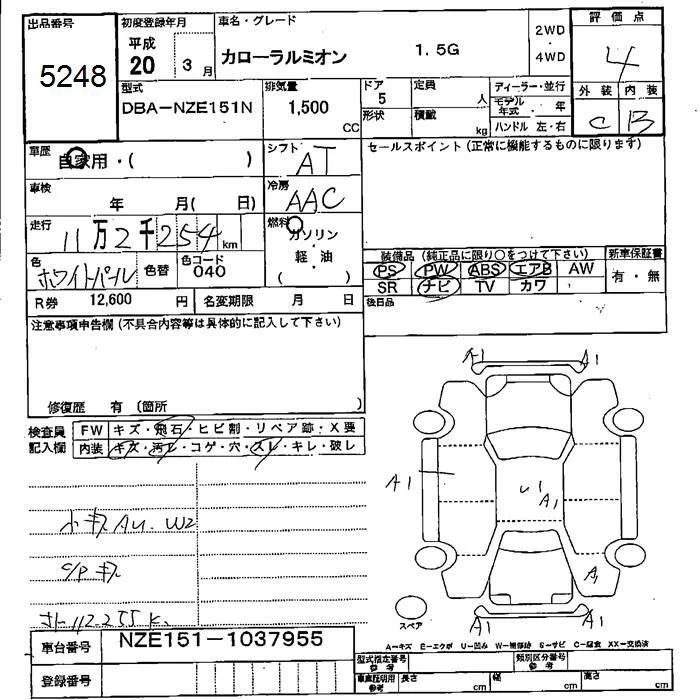 出品番号 初度登録年月 車名・グレード 評価点
5248 平成 20 3月 カローラルミオン 1.5G 2WD・4WD 4
型式 排気量 ドア 定員 ディーラー・並行 外装 内装
DBA-NZE151N 1,500 CC 5 人 モデル年式 ・ 年 C B
形状 積載 kg ハンドル 左・右
車歴 自家用・( ) シフト AT セールスポイント(正常に機能するものに限ります)
車検 年 月( 日) 冷房 AAC
走行 11万2千254km 燃料 ガソリン・軽・油 ( )
色 ホワイトパール 色替 色コード 040
装備品(純正品に限り○をつけて下さい) 新車保証書
PS PW ABS エアB AW 有・無
SR ナビ TV カワ
R券 12,600 円 名変期限 月 日 後日品
注意事項申告欄(不具合内容等は具体的に記入して下さい)
修復歴 有 (箇所 )
検査員 FW キズ・飛石・ヒビ割・リペア跡・X要
記入欄 内装 キズ・汚レ・コゲ・穴・スレ・キレ・破レ
A1 A1
A1 U1 A1
A1
小キズ A4. W2
C/P キズ
112255K
スペア A1 A1
A-キズ E-エクボ U-凹み W-補修跡 S-サビ C-腐食 XX-交換済
車台番号 NZE151-1037955
登録番号
型式指定番号 参考 類別区分番号 参考
車庫証明用 参考 長さ cm 幅 cm 高さ cm